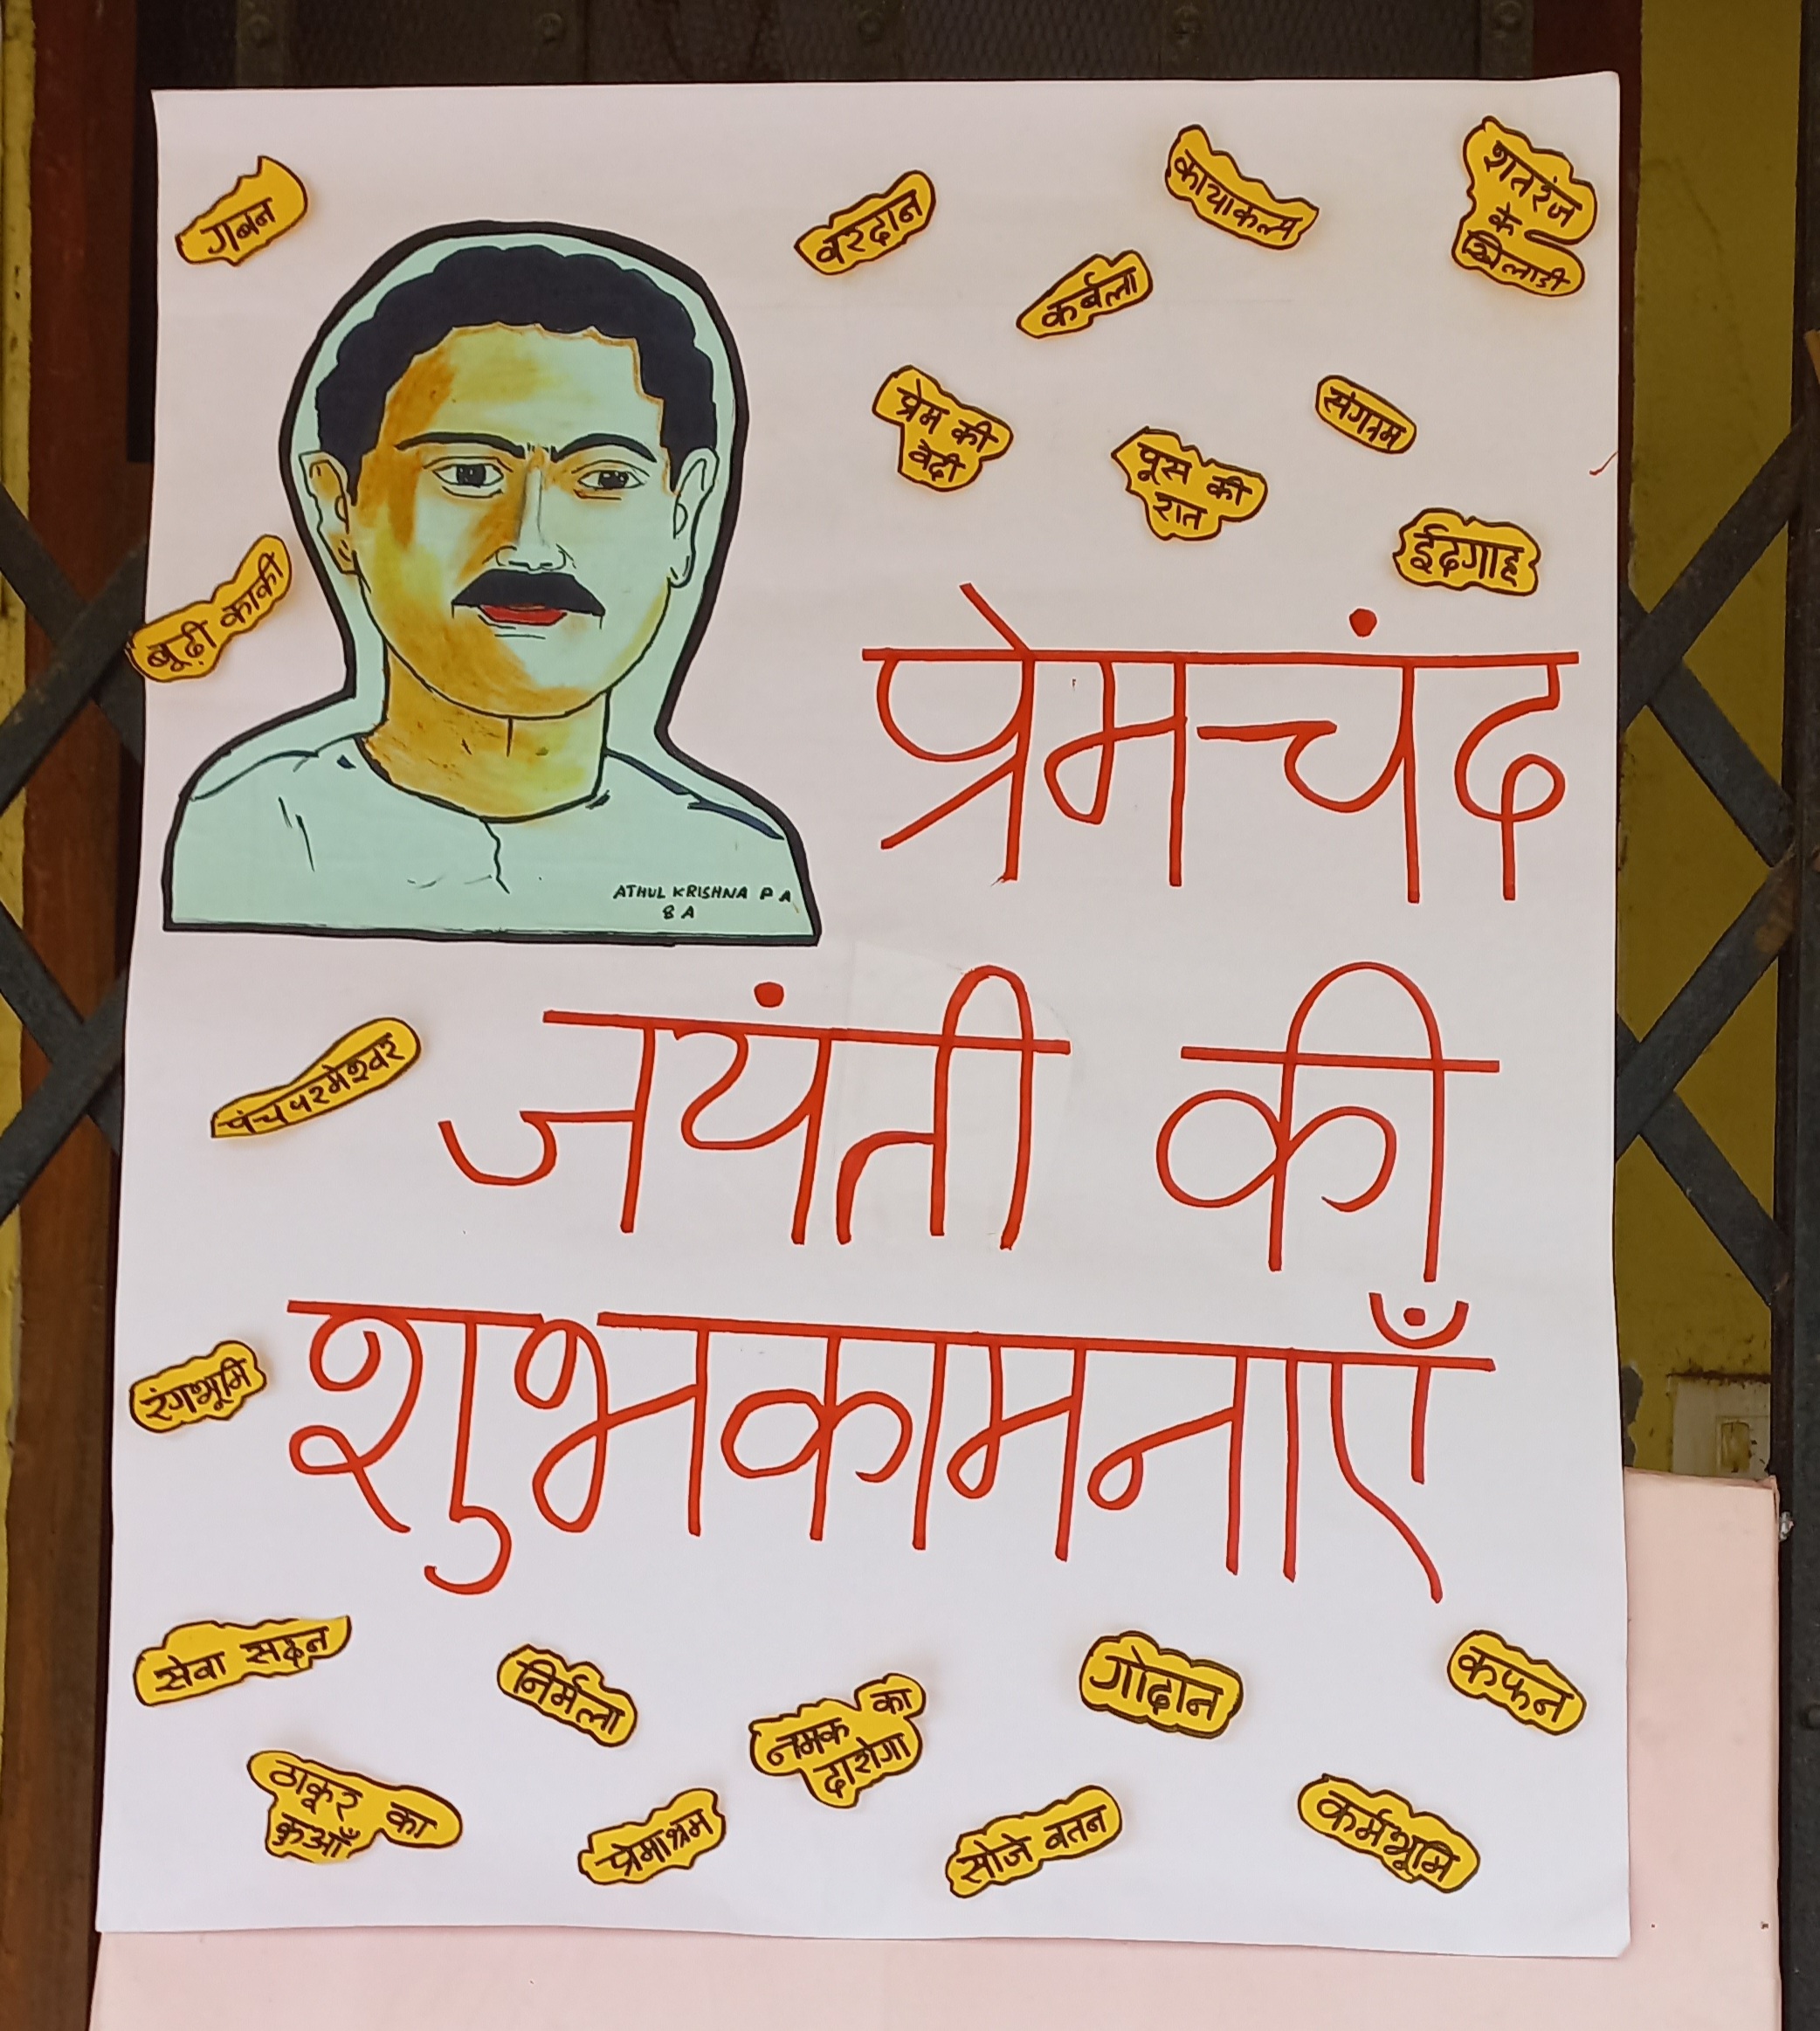 गबन
वरदान
कायाकल्प
शतरंज
के
खिलाडी
कर्बला
प्रेम की
वेदी
पूस की
रात
संगत्रम
ईदगाह
बूढ़ी काकी
प्रेमचंद
ATHUL KRISHNA P A
8 A
जयंती की
पंचपरमेश्वर
शुभकामनाएँ
रंगभूमि
सेवा सदन
निर्मला
नमक का
दारोगा
गोदान
कफन
ठाकूर का
कुआँ
प्रेमाश्रम
सोजे वतन
कर्मभूमि